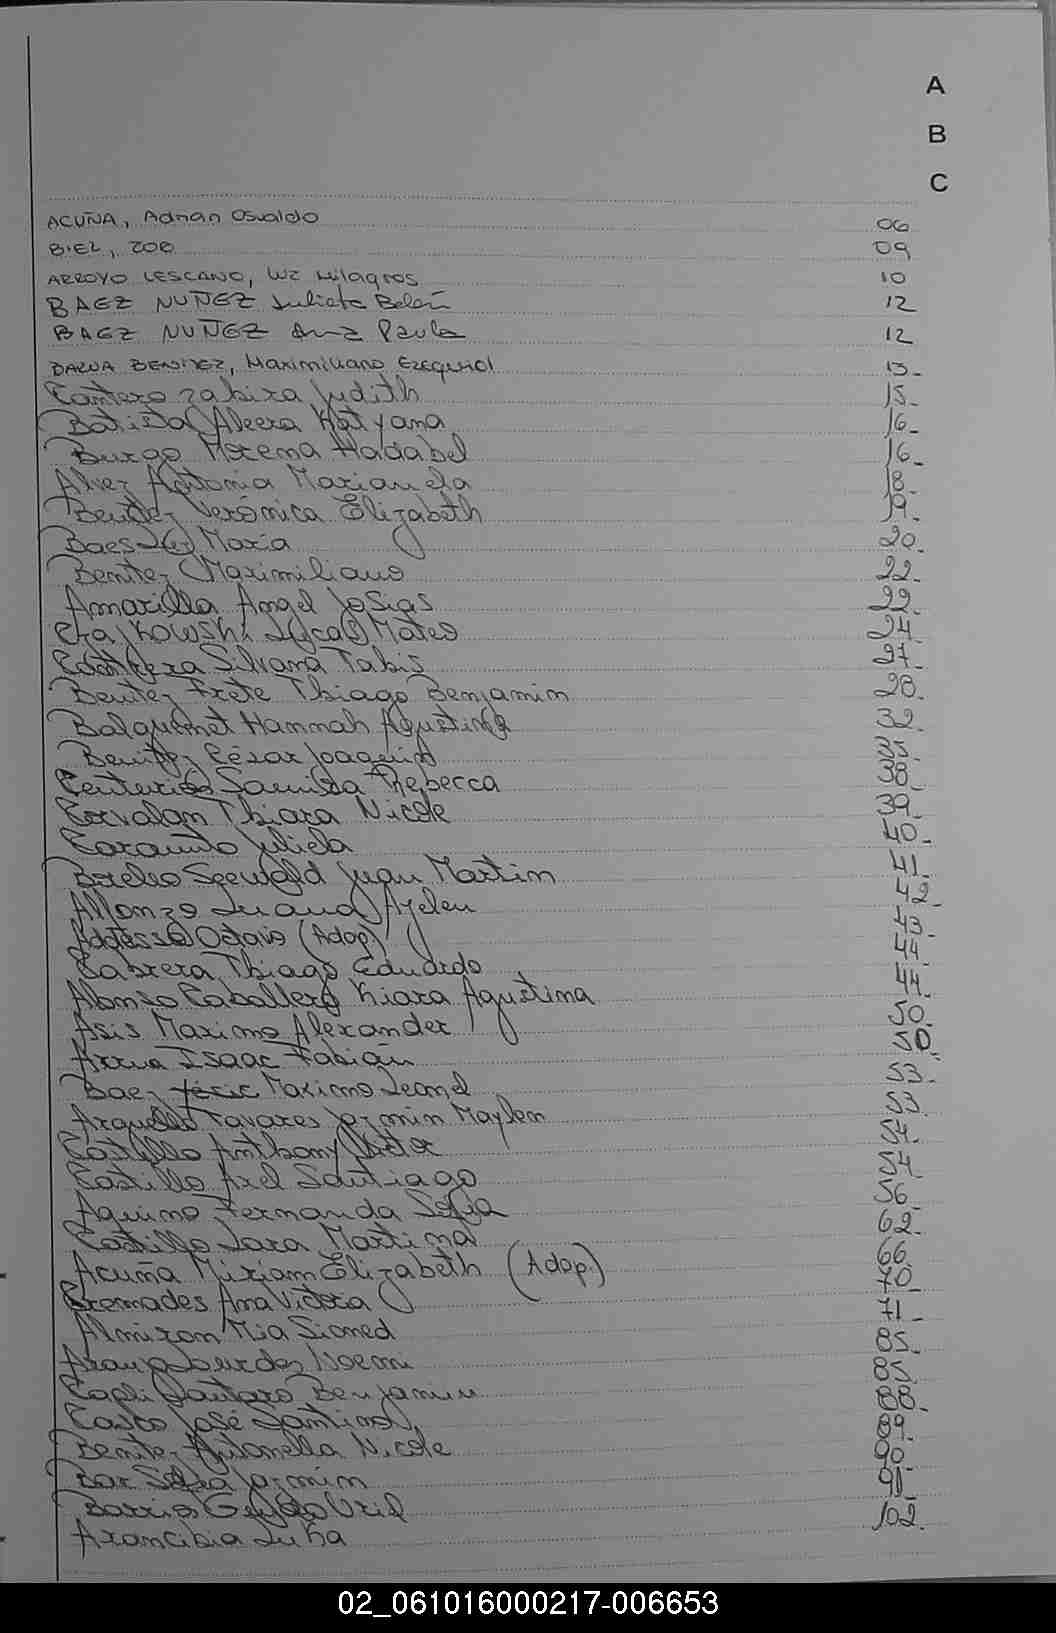 A
B
C
ACUÑA, Adrian Osvaldo 06
BIEL, ZOE 09
ARROYO LESCANO, Luz Milagros 10
BAEZ NUÑEZ Julieta Belén 12
BAEZ NUÑEZ Ana Paula 12
BARUA BENITEZ, Maximiliano Ezequiel 13-
Cantero Zahira Judith 15-
Batista Aleexa Katyana 16-
Burgo Morena 16-
Alvez Antonia Marianela 18-
Benitez Verónica Elizabeth 19-
Baes María 20-
Benitez Maximiliano 22-
Amarilla Angel Josias 22-
Lucas Mateo 24-
Silvana 27-
Benitez Frete Thiago Benjamin 28-
Hannah Agustina 32-
Benitez César Joaquin 35-
Centurion Samira Rebecca 38-
Corvalan Thiara Nicole 39-
Julieta 40-
Seewald Juan Martin 41-
Alfonzo Luana Ayelen 42-
Octavio (Adop.) 43-
Cabrera Thiago Eduardo 44-
Alonso Caballero Kiara Agustina 44-
Asis Maximo Alexander 50-
Arrua Isaac Fabián 50-
Baez Maximo Leonel 53-
Arguello Tavares Jazmin Maylen 53
Castillo Anthony Victor 54-
Castillo Axel Santiago 54
Aquino Fernanda Sofia 56-
Castillo Lara Martina 62-
Acuña Miriam Elizabeth (Adop.) 66-
Ana Victoria 70-
Almiron Mia Sioned 71-
Araujo Lourdes Noemi 85-
Lautaro Benjamin 85-
Castro José Santino 88-
Benitez Antonella Nicole 89-
Sofia Jazmín 90-
Barrios Uriel 91-
Arancibia Luka 102-
02_061016000217-006653